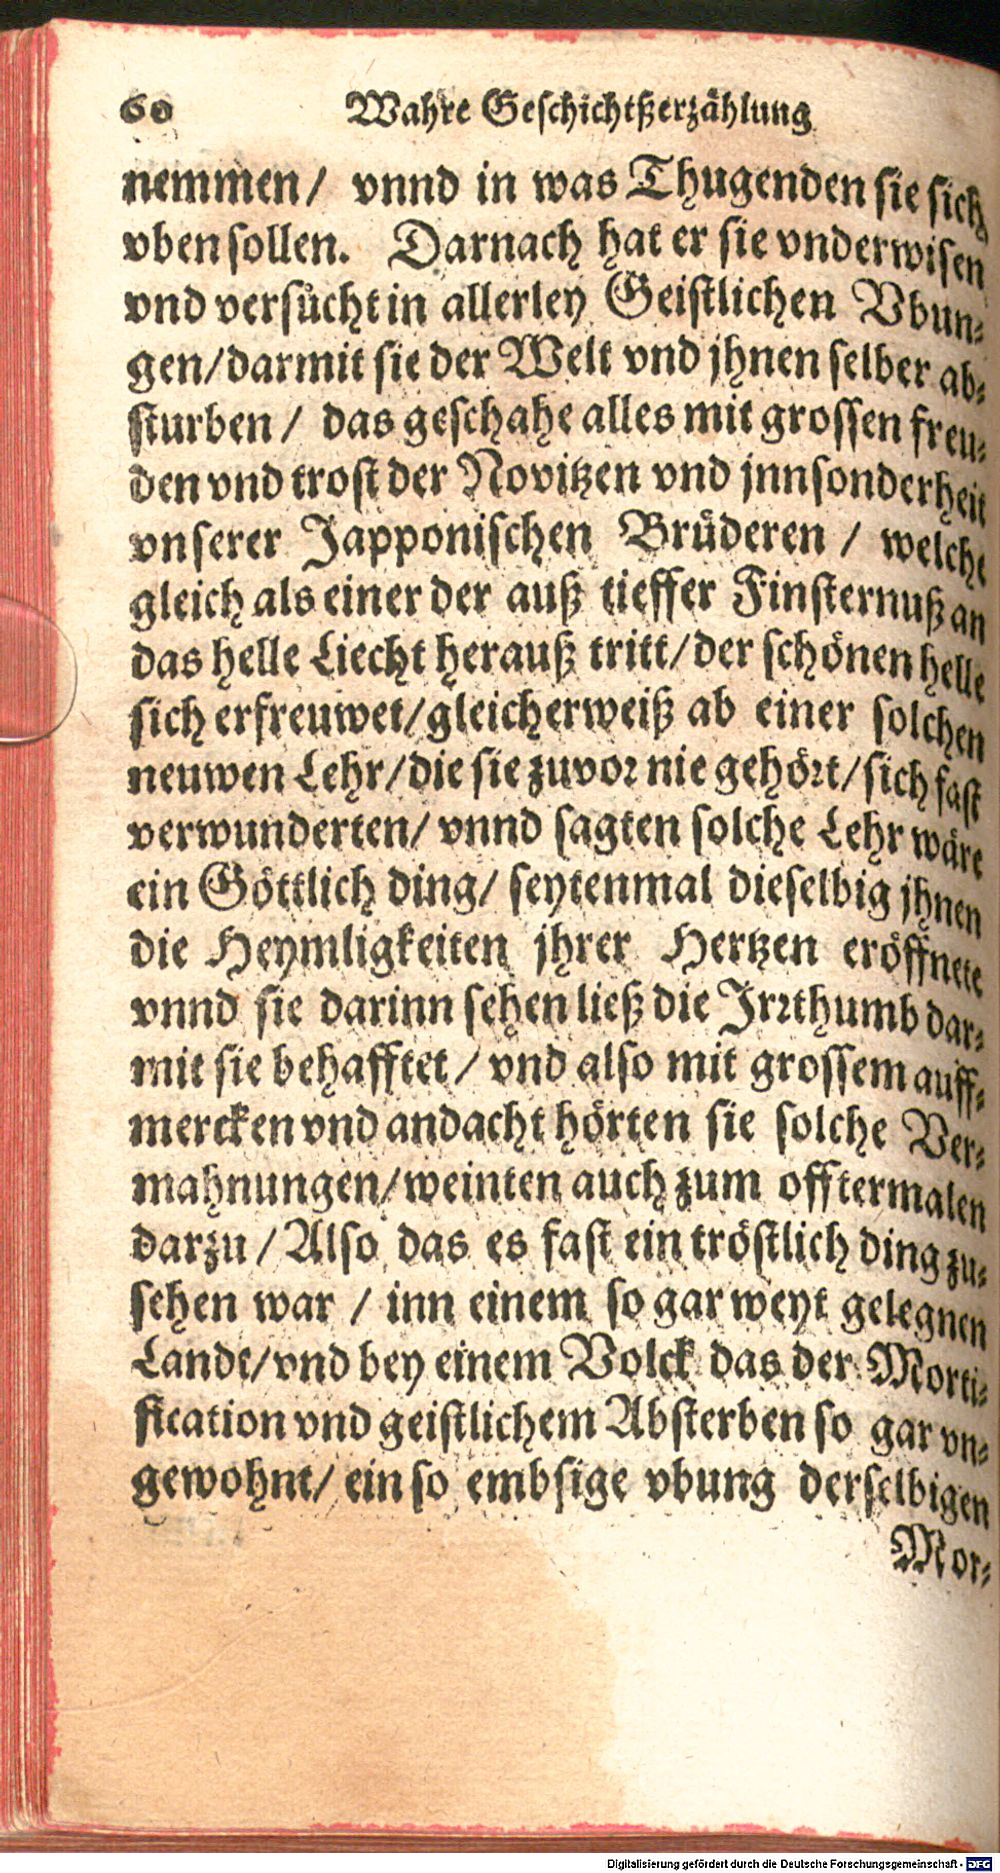 60 Wahre Geschichtßerzählung
nemmen/ vnnd in was Thugenden sie sich
vben sollen. Darnach hat er sie vnderwisen
vnd versůcht in allerley Geistlichen Vbun-
gen/darmit sie der Welt vnd jhnen selber ab-
sturben / das geschahe alles mit grossen freu-
den vnd trost der Novitzen vnd jnnsonderheit
vnserer Japponischen Brüderen / welche
gleich als einer der auß tieffer Finsternuß an
das helle Liecht herauß tritt/der schönen helle
sich erfreuwet/gleicherweiß ab einer solchen
neuwen Lehr/die sie zuvor nie gehört/sich fast
verwunderten/ vnnd sagten solche Lehr wäre
ein Göttlich ding/ seytenmal dieselbig jhnen
die Heymligkeiten jhrer Hertzen eröffnete
vnnd sie darinn sehen ließ die Irrthumb dar-
mit sie behafftet / vnd also mit grossem auff-
mercken vnd andacht hörten sie solche Ver-
mahnungen/weinten auch zum offtermalen
darzu / Also das es fast ein tröstlich ding zu-
sehen war / inn einem so gar weyt gelegnen
Lande/vnd bey einem Volck das der Morti-
fication vnd geistlichem Absterben so gar vn-
gewohnt/ ein so embsige vbung derselbigen
Mor-
Digitalisierung gefördert durch die Deutsche Forschungsgemeinschaft - DFG